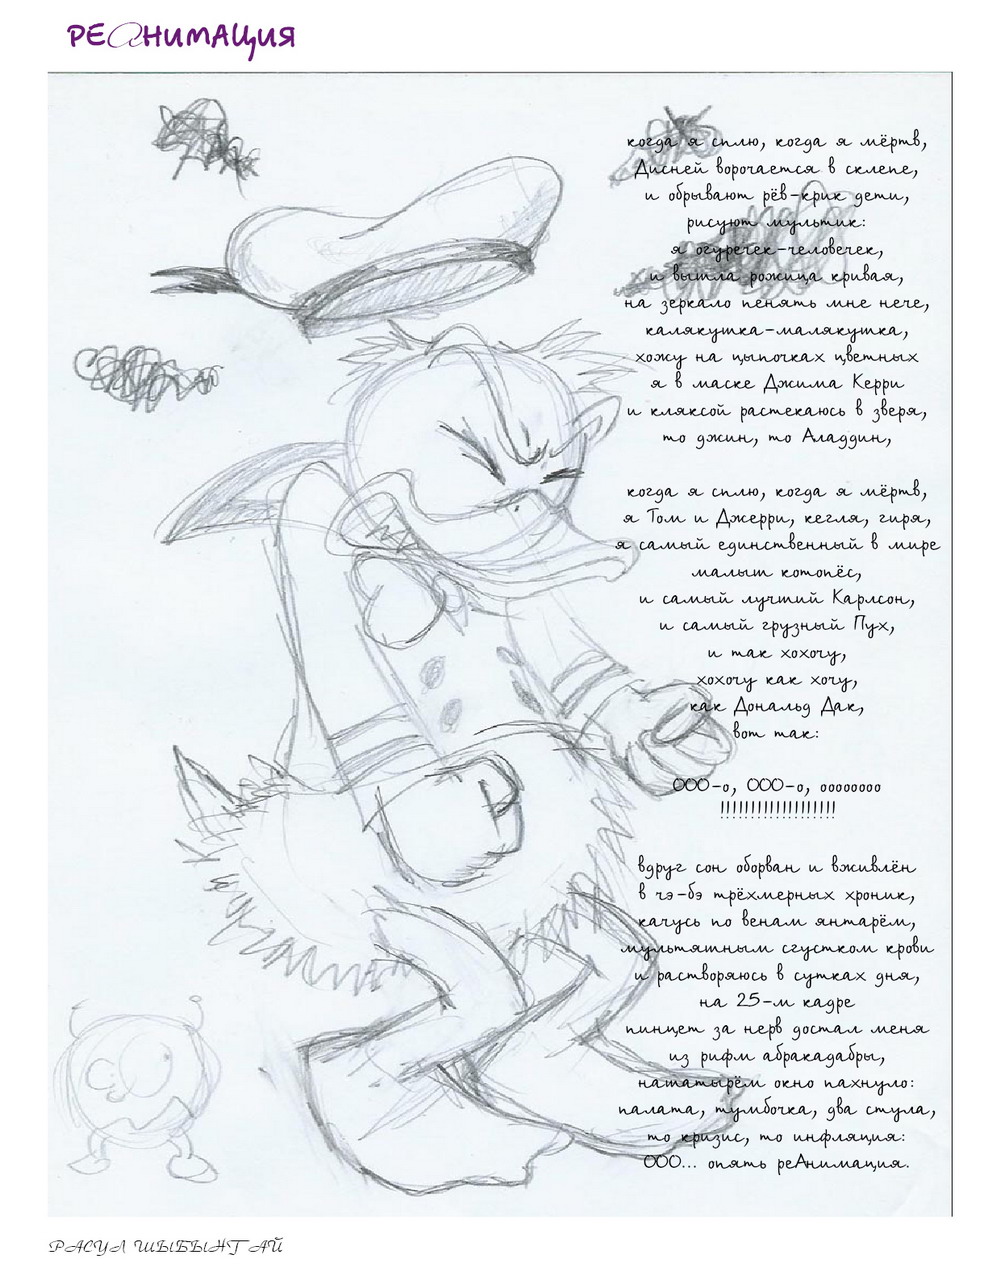 РЕАНИМАЦИЯ
когда я сплю, когда я мёртв,
Дисней ворочается в склепе,
и обрывают рёв-крик дети,
рисуют мультик:
я огуречек-человечек,
и вышла рожица кривая,
на зеркало пенять мне нече,
калякушка-малякушка,
хожу на цыпочках цветных
я в маске Джима Керри
и кляксой растекаюсь в зверя,
то джин, то Аладдин,
когда я сплю, когда я мёртв,
я Том и Джерри, кегля, гиря,
я самый единственный в мире
малыш котопёс,
и самый лучший Карлсон,
и самый грузный Пух,
и так хохочу,
хохочу как хочу,
как Дональд Дак,
вот так:
ООО-о, ООО-о, оооооооо
!!!!!!!!!!!!!!!!!!!
вдруг сон оборван и вживлён
в чэ-бэ трёхмерных хроник,
качусь по венам янтарём,
мультяшным сгустком крови
и растворяюсь в сутках дня,
на 25-м кадре
пинцет за нерв достал меня
из рифм абракадабры,
нашатырём окно пахнуло:
палата, тумбочка, два стула,
то кризис, то инфляция:
ООО... опять реАнимация.
РАСУЛ ШЫБЫНТАЙ